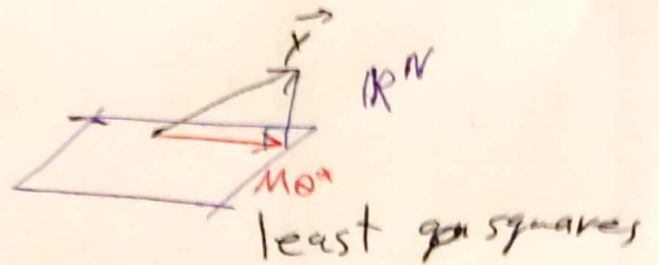 x
ℝᴺ
Mθ*
least squares